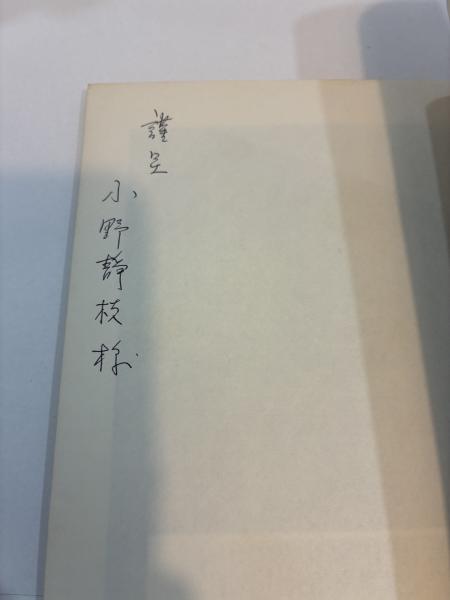 謹呈
小野静枝様